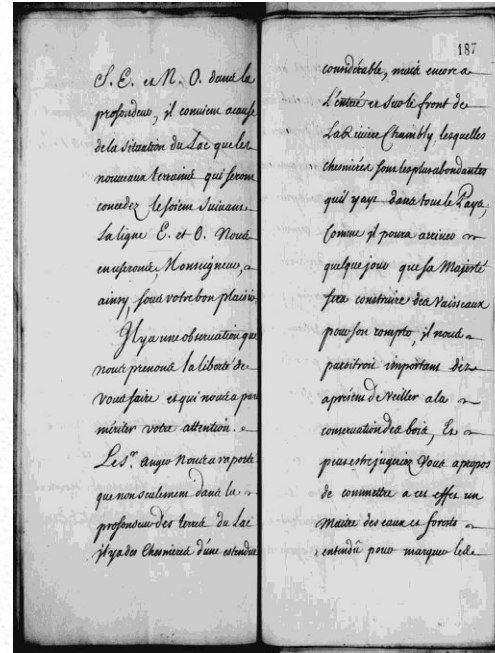 S. E. et N. O. dans la
profondeur, il convient acause
de la situation du Lac que les
nouveaux terrains qui seront
concedez le soient suivant
La ligne E. et O. Nous
en userons, Monseigneur,
ainsy, sous votre bon plaisir.
Il y a une observation que
nous prenons la liberté de
vous faire et qui nous a paru
mériter votre attention.
Le Sr. anger nous a raporté
que non seulement dans la
profondeur des terres du Lac
il y a des Chesnieres d'une estendue
187
considérable, mais encore a
L'entrée et sur le front de
La Riviere Chambly, lesquelles
chesnieres sont les plus abondantes
qu'il y ayt dans tout le Pays,
Comme il poura arriver
quelque jour que sa Majesté
fera construire des Vaisseaux
pour son compte, il nous
paroitroit important dès
apresent de veiller a la
conservation des bois, Et
peut estre jugeriez Vous apropos
de commettre a cet effet un
Maitre des eaux et forests
entendû pour marquer les